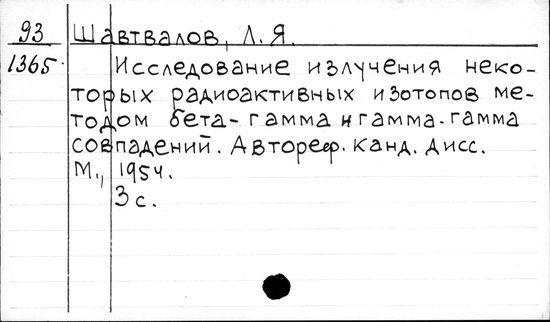 93 Шавтвалов, Л. Я.
1365. Исследование излучения неко-
торых радиоактивных изотопов ме-
тодом бета-гамма и гамма-гамма
совпадений. Автореф. канд. дисс.
М., 1954.
3 с.